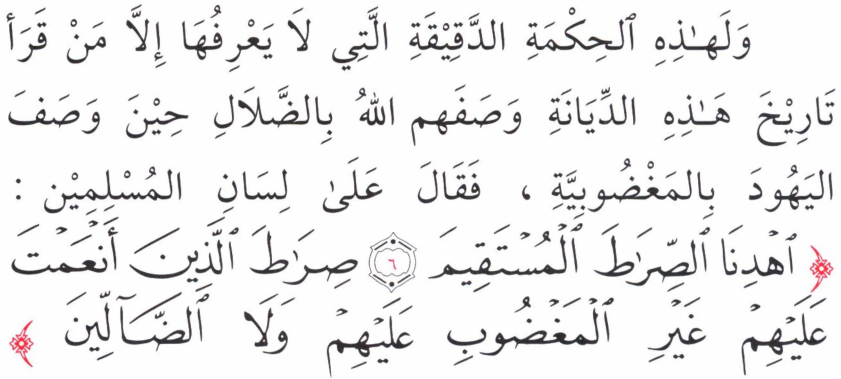 وَلَهـٰذِهِ ٱلحِكْمَةِ الدَّقِيْقَةِ الَّتِي لَا يَعْرِفُهَا إِلَّا مَنْ قَرَأَ
تَارِيْخَ هَـٰذِهِ الدِّيَانَةِ وَصَفَهم اللهُ بِالضَّلَالِ حِيْنَ وَصَفَ
اليَهُودَ بِالمَغْضُوبِيَّةِ ، فَقَالَ عَلَىٰ لِسَانِ المُسْلِمِيْن :
﴿ ٱهْدِنَا ٱلصِّرَٰطَ ٱلْمُسْتَقِيمَ ٦ صِرَٰطَ ٱلَّذِينَ أَنْعَمْتَ
عَلَيْهِمْ غَيْرِ ٱلْمَغْضُوبِ عَلَيْهِمْ وَلَا ٱلضَّآلِّينَ ﴾